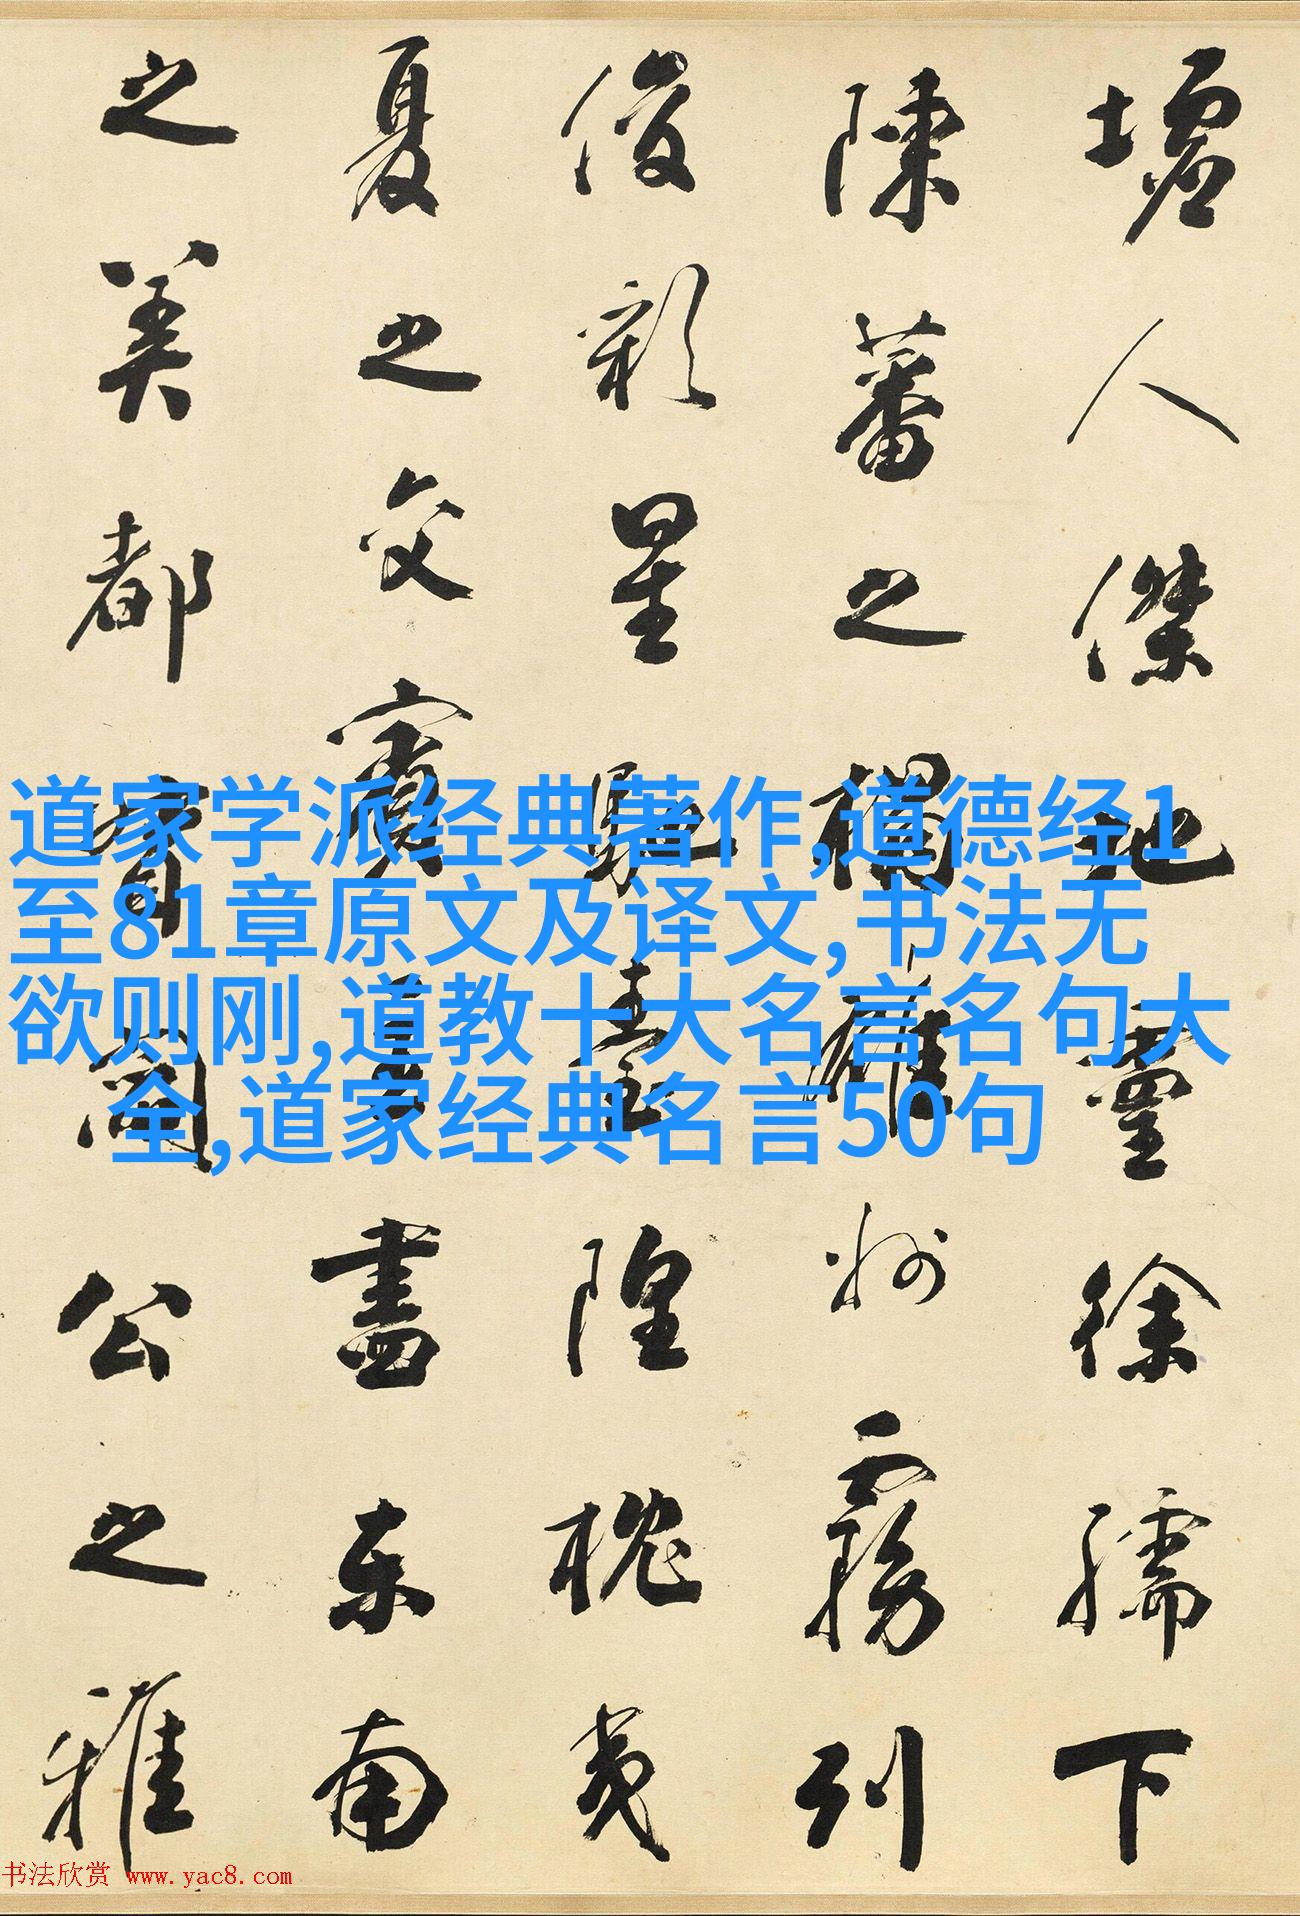 墟人傑地靈徐孺下
陳蕃之榻雄州霧列
俊彩星馳臺隍枕夷
夏之交賓主盡東南
之美都督閻公之雅
道家学派经典著作,道德经1
至81章原文及译文,书法无
欲则刚,道教十大名言名句大
全,道家经典名言50句
书法欣赏 www.yac8.com